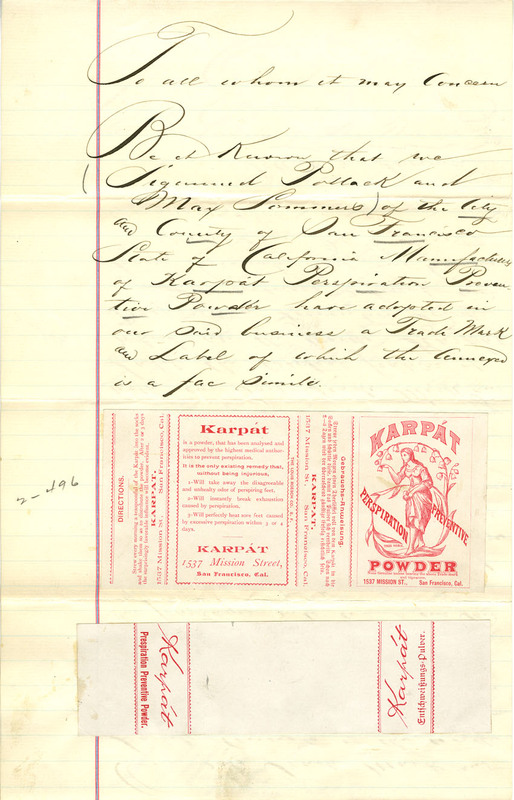 To all whom it may Concern
Be it Known that we
(Sigmund Pollack and
Max Sommers) of the City
and County of San Francisco
State of California Manufacturers
of Karpát Perspiration Preven
tive Powder have adopted in
our said business a Trade Mark
and Label of which the annexed
is a fac simile.
2-496
DIRECTIONS.
KARPÁT.
1537 Mission St. San Francisco, Cal.
Karpát
is a powder, that has been analysed and
approved by the highest medical author-
ities to prevent perspiration.
It is the only existing remedy that,
without being injurious,
1-Will take away the disagreeable
and unhealthy odor of perspiring feet.
2-Will instantly break exhaustion
caused by perspiration.
3-Will perfectly heal sore feet caused
by excessive perspiration within 3 or 4
days.
KARPÁT
1537 Mission Street,
San Francisco, Cal.
Gebrauchs-Anweisung.
KARPÁT.
1537 Mission St. San Francisco, Cal.
KARPÁT
PERSPIRATION PREVENTIVE
POWDER
1537 MISSION ST., San Francisco, Cal.
Karpát
Prespiration Preventive Powder.
Karpát
Entschweißungs-Pulver.